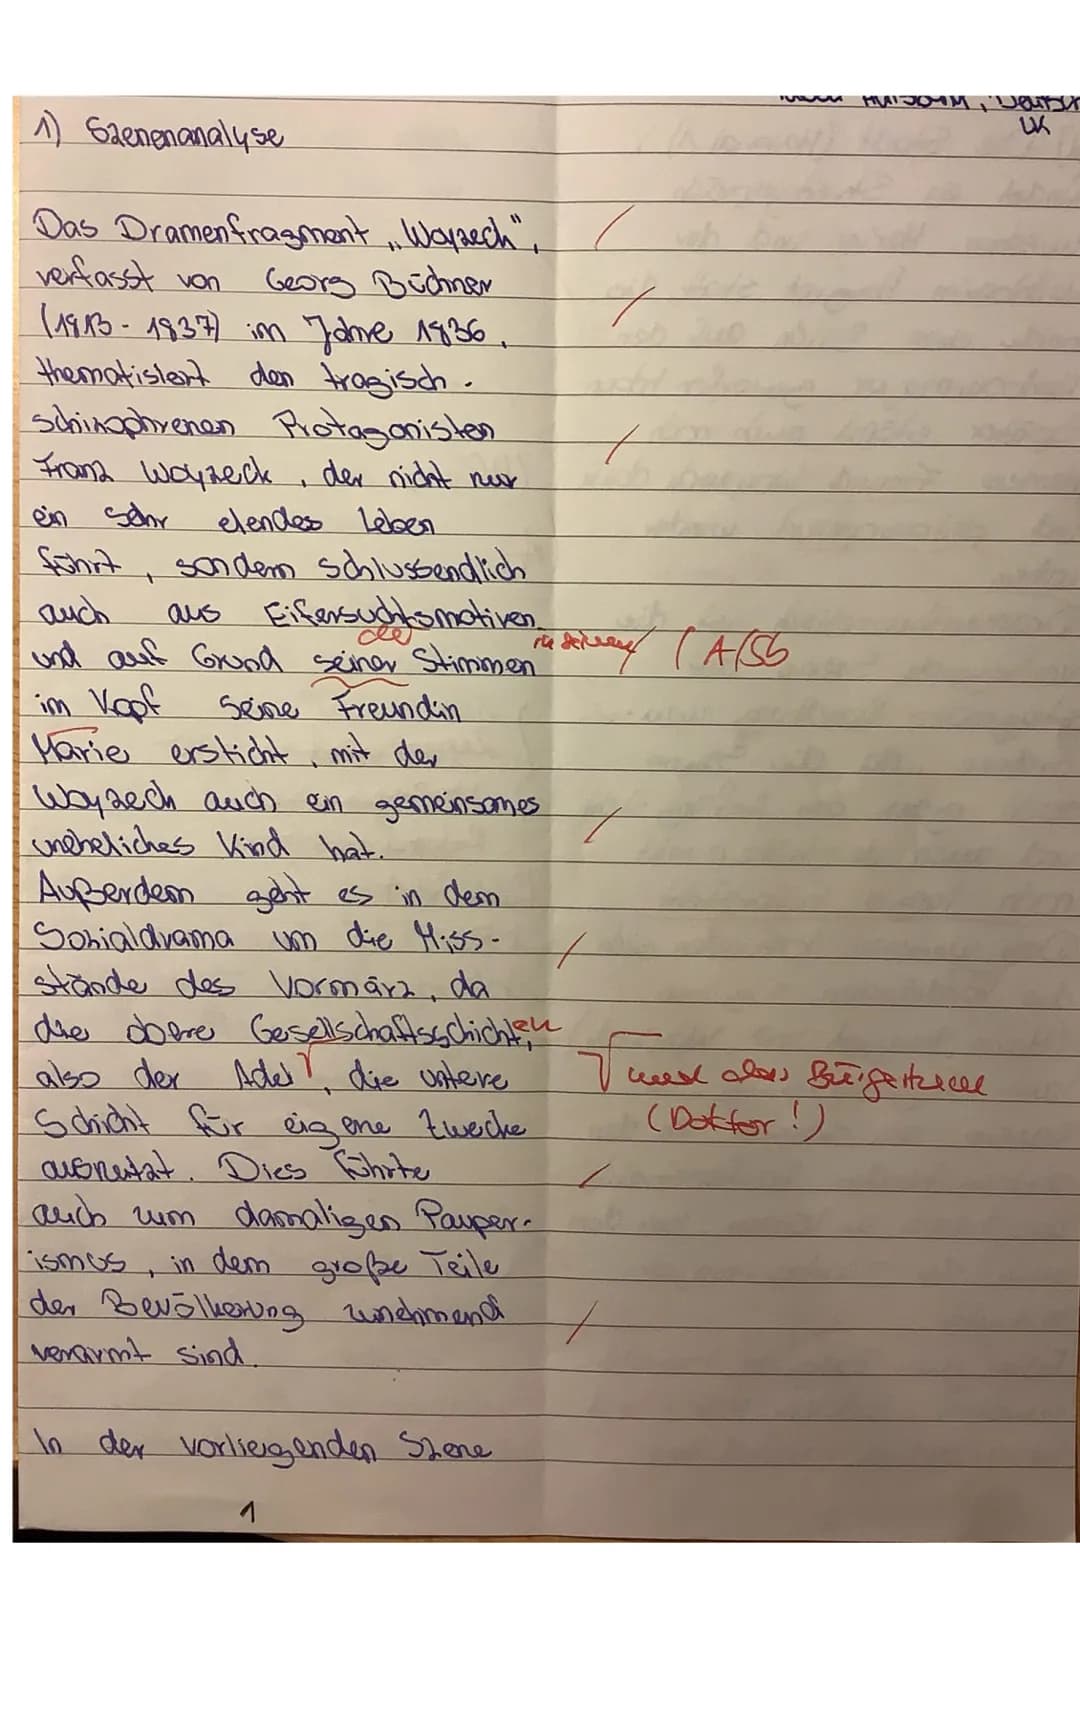 Deutsch
LK
1) Szenenanalyse
Das Dramenfragment „Woyzeck",
verfasst von Georg Büchner
(1813 - 1837) im Jahre 1836,
thematisiert den tragisch-
schizophrenen Protagonisten
Franz Woyzeck, der nicht nur
ein sehr elendes Leben
führt, sondern schlussendlich
auch aus Eifersuchtsmotiven
der in seinem
und auf Grund seiner Stimmen ( A/Sb
im Kopf seine Freundin
Marie ersticht, mit der
Woyzeck auch ein gemeinsames
uneheliches Kind hat.
Außerdem geht es in dem
Sozialdrama um die Miss-
stände des Vormärz, da
die obere Gesellschaftsschichten,
also der Adel, die untere und das Bürgertum
Schicht für eigene Zwecke (Doktor!)
ausnutzt. Dies führte
auch zum damaligen Pauper-
ismus, in dem große Teile
der Bevölkerung zunehmend
verarmt sind.
In der vorliegenden Szene
1